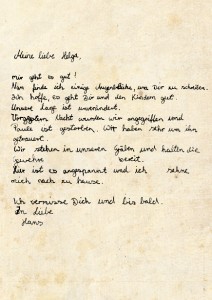 Meine liebe Helga,
mir geht es gut!
Nun finde ich einige Augenblicke, um Dir zu schreiben.
Ich hoffe, es geht Dir und den Kindern gut.
Unsere Lage ist unverändert.
Vorgestern Nacht wurden wir angegriffen und
Paule ist gestorben. Wir haben sehr um ihn
getrauert.
Wir stehen in unseren Gräben und halten die
Gewehre bereit.
Hier ist es angespannt und ich sehne
mich nach zu Hause.
Ich vermisse Dich und bis bald.
In Liebe
Hans